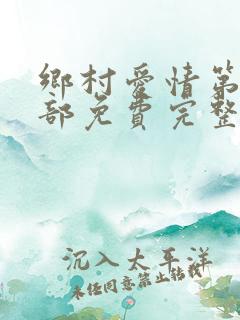 鄉村愛情第
部免費完整
沉入太平洋
未任同意禁止轉載